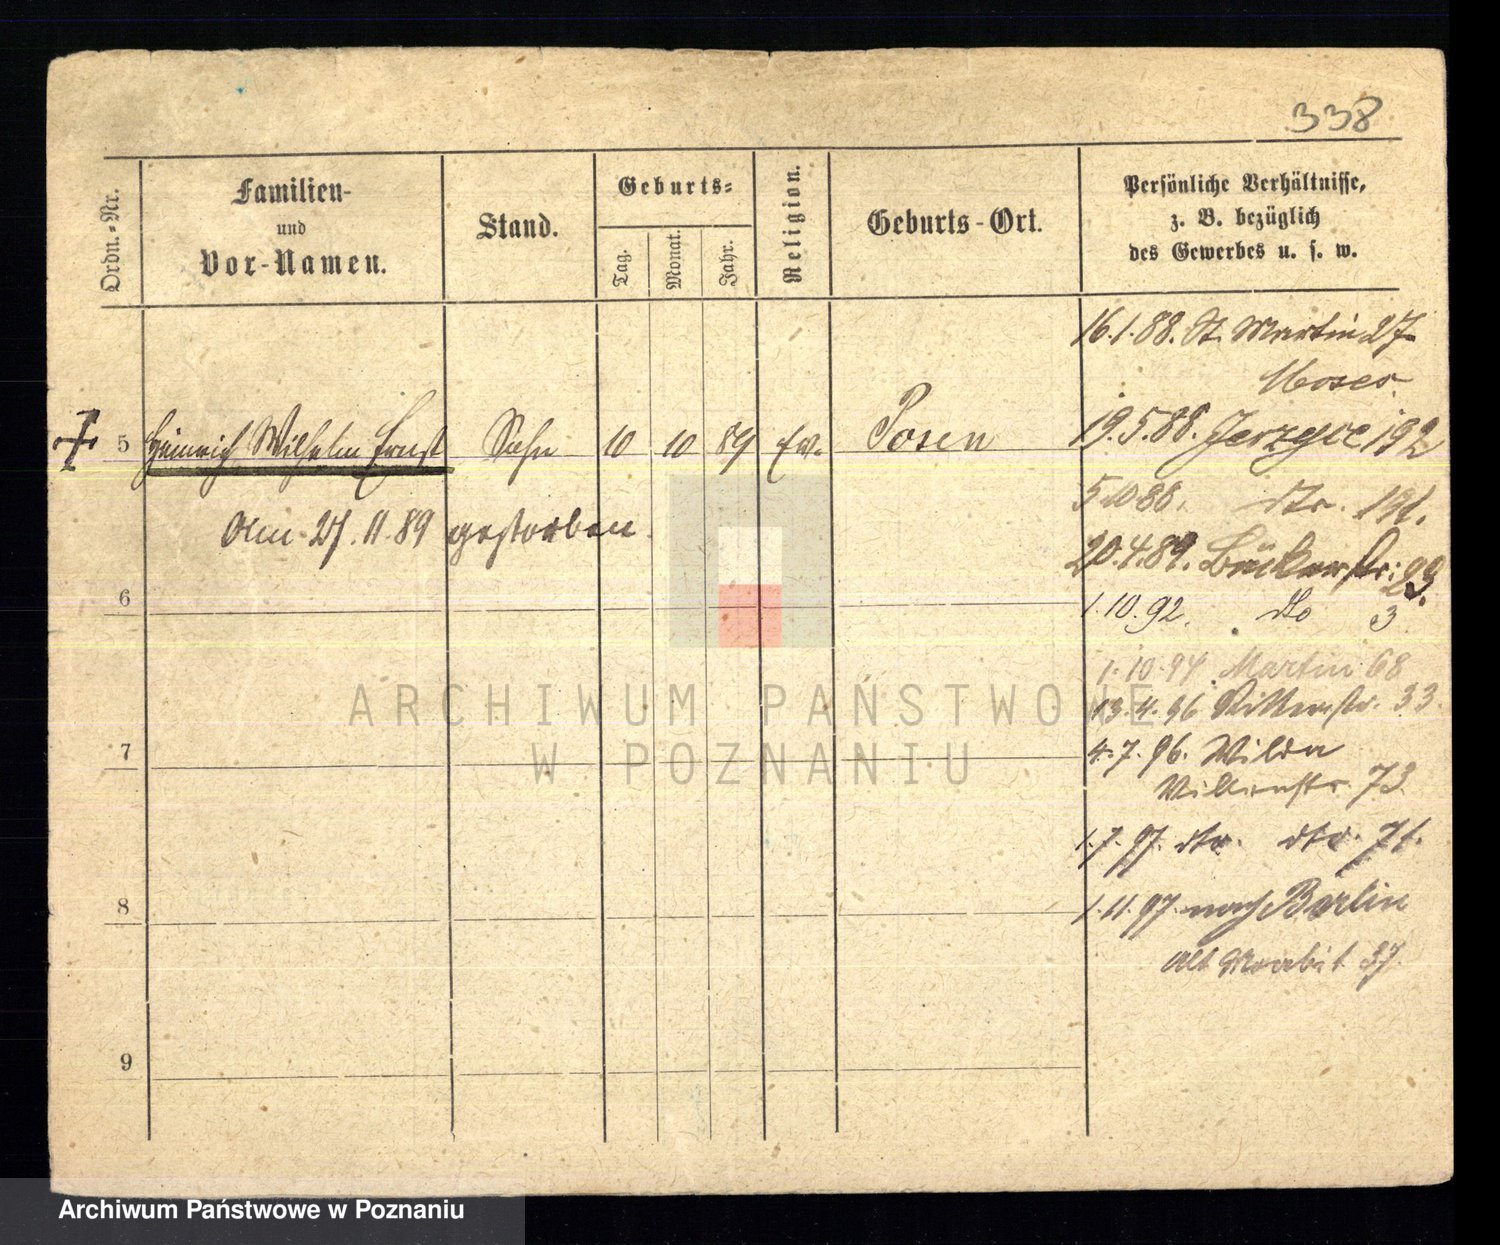 338
Ordn.-Nr.
Familien-
und
Vor-Namen.
Stand.
Geburts-
Tag.
Monat.
Jahr.
Religion.
Geburts-Ort.
Persönliche Verhältnisse,
z. B. bezüglich
des Gewerbes u. s. w.
16.1.88. St. Martin 27
Moses
5 Heinrich Wilhelm Ernst Sohn 10 10 89 Ev. Posen
19.5.88. Jerzyce 192
Am 27.11.89 gestorben.
5.10.88. dto. 191.
20.4.89. Bäckerstr. 23.
6
1.10.92. dto 3
1.10.94 Martin 68
13.4.96 33.
7
4.7.96. Wilda
73
1.7.97. dto. dto. 71.
8
1.11.97. nach Berlin
Alt Moabit 37.
9
ARCHIWUM PAŃSTWOWE
W POZNANIU
Archiwum Państwowe w Poznaniu